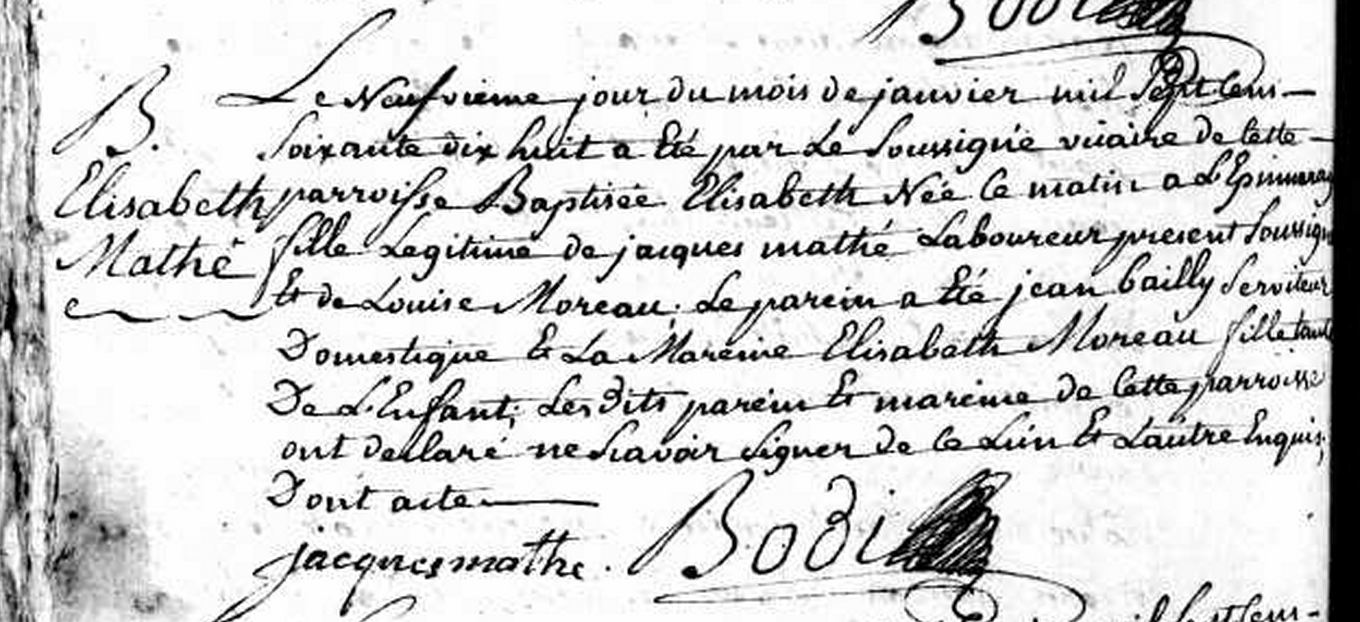 Bodi
B.
Elisabeth
Mathé
Le Neufvieme jour du mois de janvier mil Sept Cens
Soixante dix huit a Eté par Le Soussigné vicaire de Cette
parroisse Baptisée Elisabeth Née Ce matin a L'Epinneray
fille Legitime de jacques mathé Laboureur present Soussigné
Et de Louise Moreau. Le parein a Eté jean bailly Serviteur
Domestique Et La Mareine Elisabeth Moreau fille tante
De L'Enfant; Les dits parein Et mareine de Cette parroisse
ont declaré ne Scavoir Signer de Ce L'un Et L'autre Enquis;
Dont acte
jacques mathe. Bodi